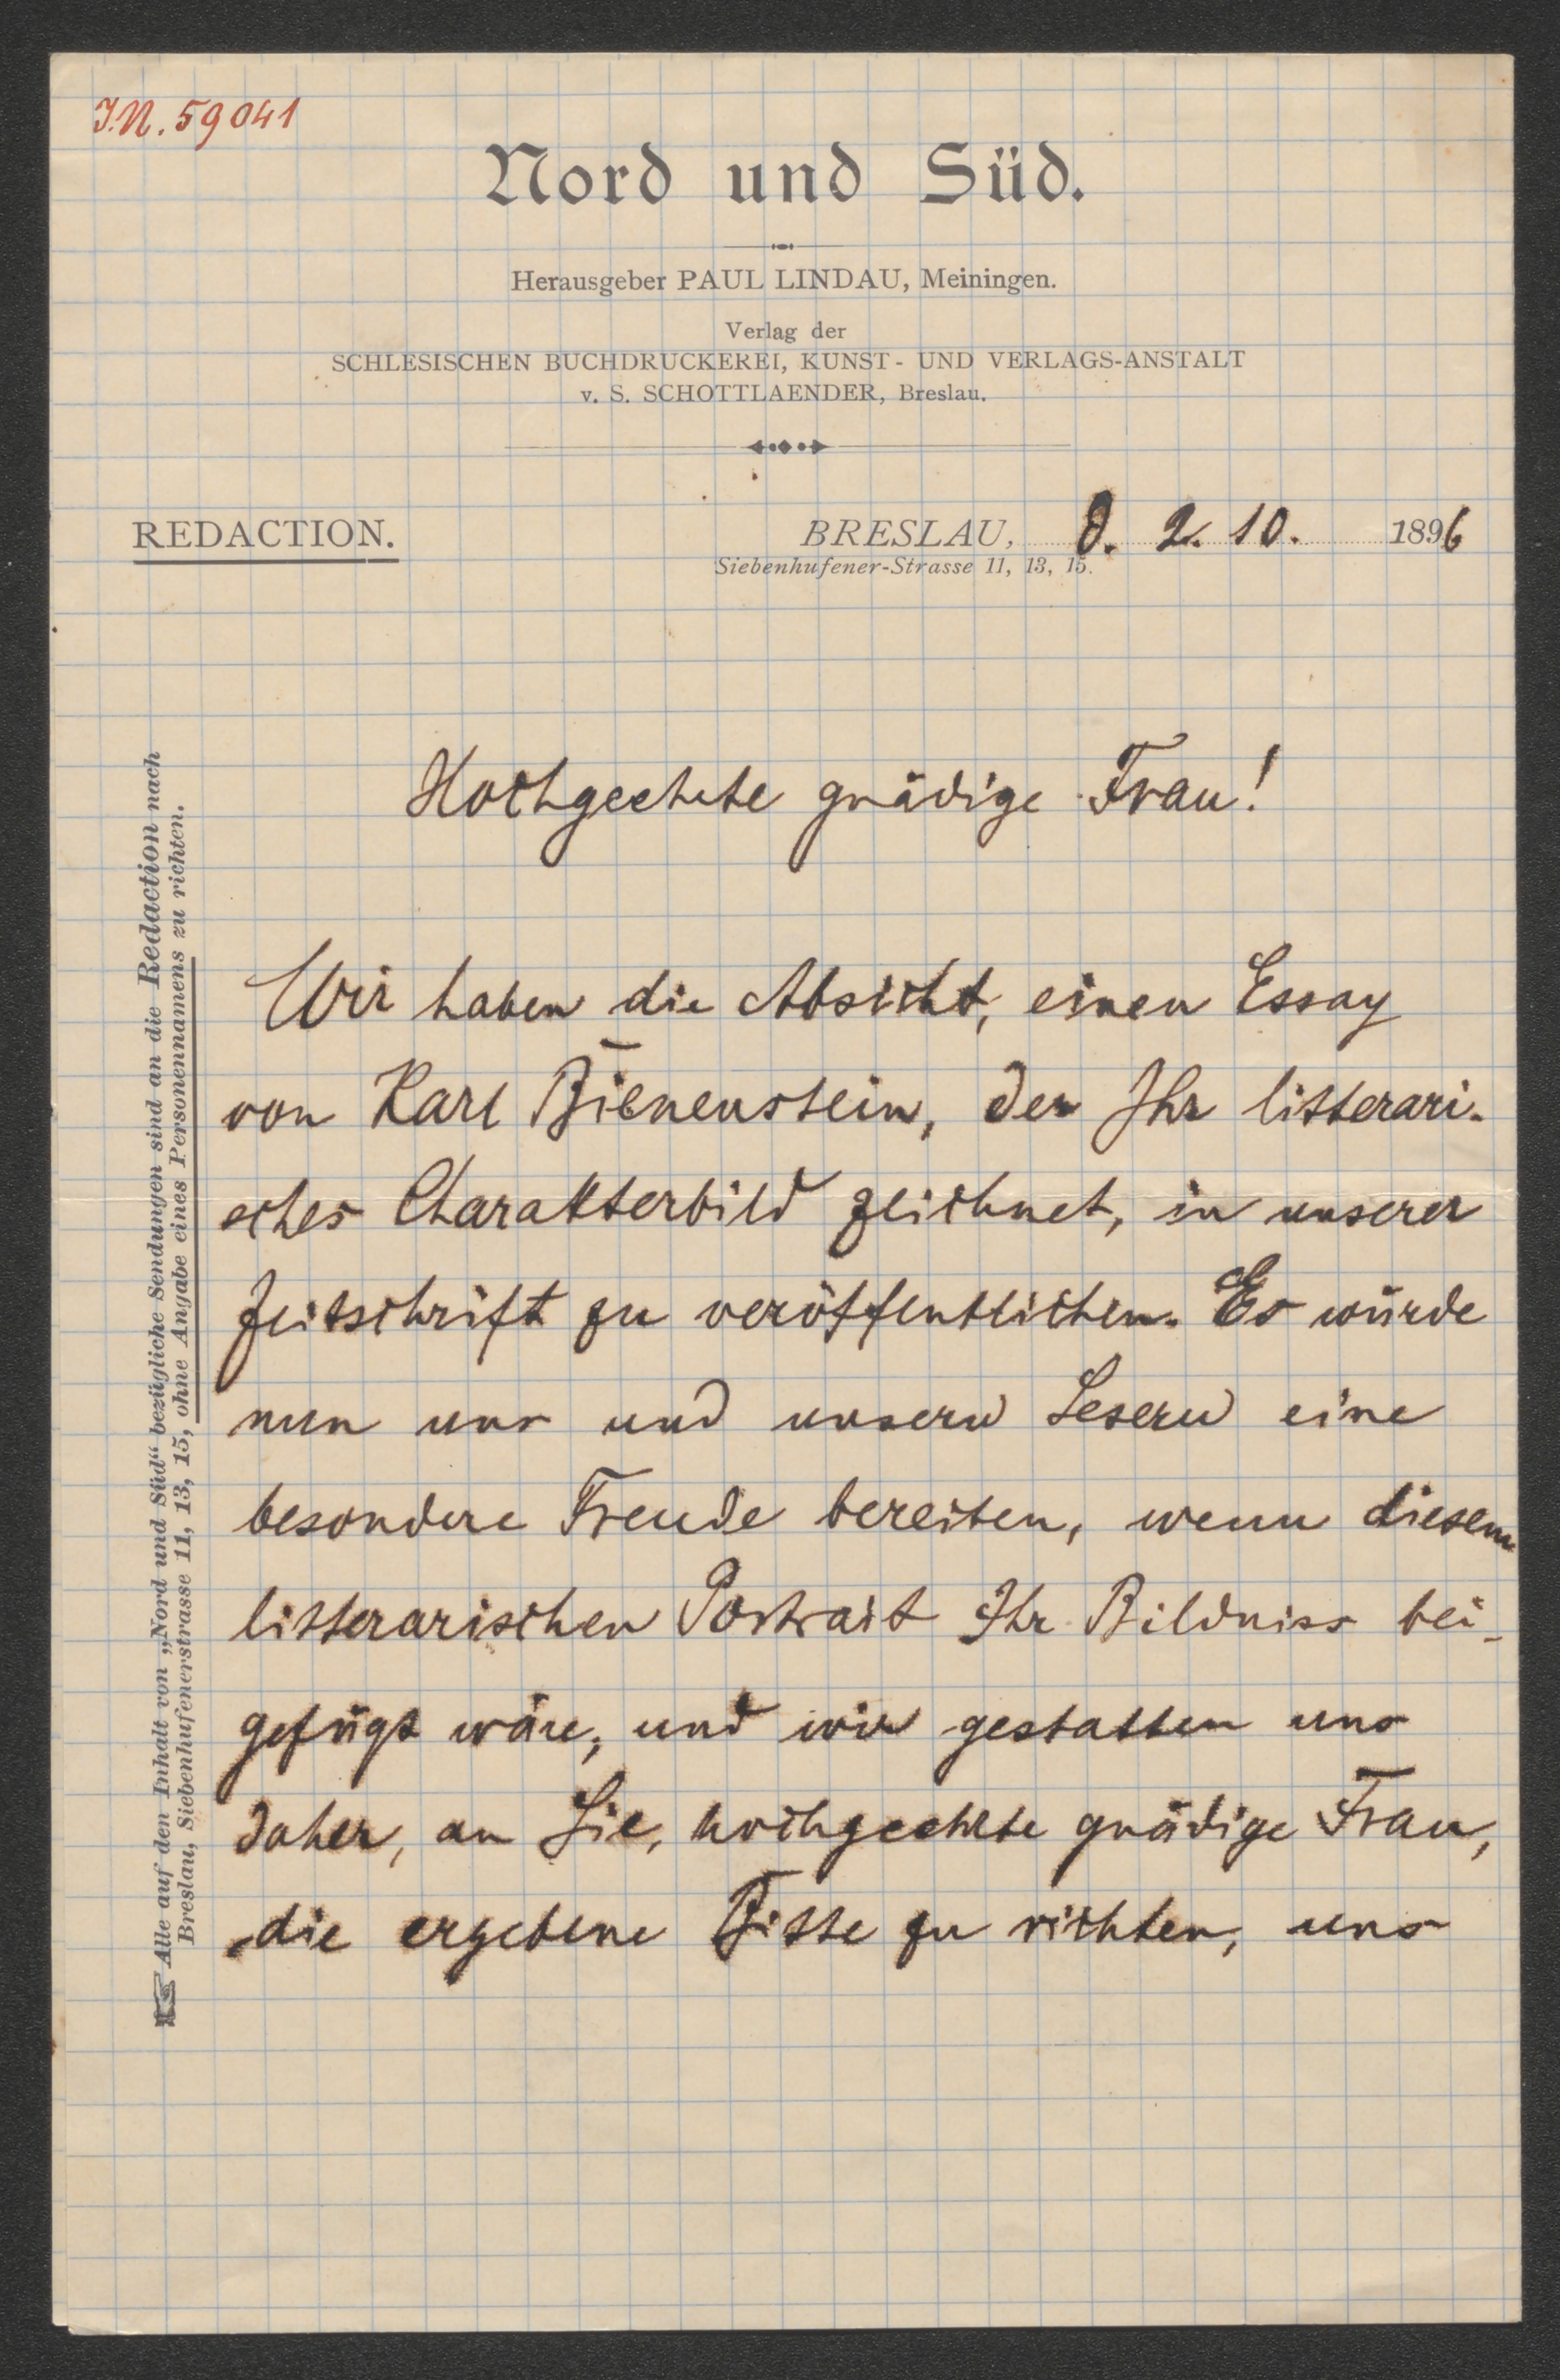 I.N. 59041
Nord und Süd.
Herausgeber PAUL LINDAU, Meiningen.
Verlag der
SCHLESISCHEN BUCHDRUCKEREI, KUNST- UND VERLAGS-ANSTALT
v. S. SCHOTTLAENDER, Breslau.
REDACTION.
BRESLAU, d. 2. 10. 1896
Siebenhufener-Strasse 11, 13, 15.
Hochgeehrte gnädige Frau!
Wir haben die Absicht, einen Essay
von Karl Bienenstein, der Ihr litterari-
sches Charakterbild zeichnet, in unserer
Zeitschrift zu veröffentlichen. Es würde
nun uns und unsern Lesern eine
besondere Freude bereiten, wenn diesem
litterarischen Portrait Ihr Bildniss bei-
gefügt wäre, und wir gestatten uns
daher, an Sie, hochgeehrte gnädige Frau,
die ergebene Bitte zu richten, uns
Alle auf den Inhalt von „Nord und Süd“ bezügliche Sendungen sind an die Redaction nach
Breslau, Siebenhufenerstrasse 11, 13, 15, ohne Angabe eines Personennamens zu richten.